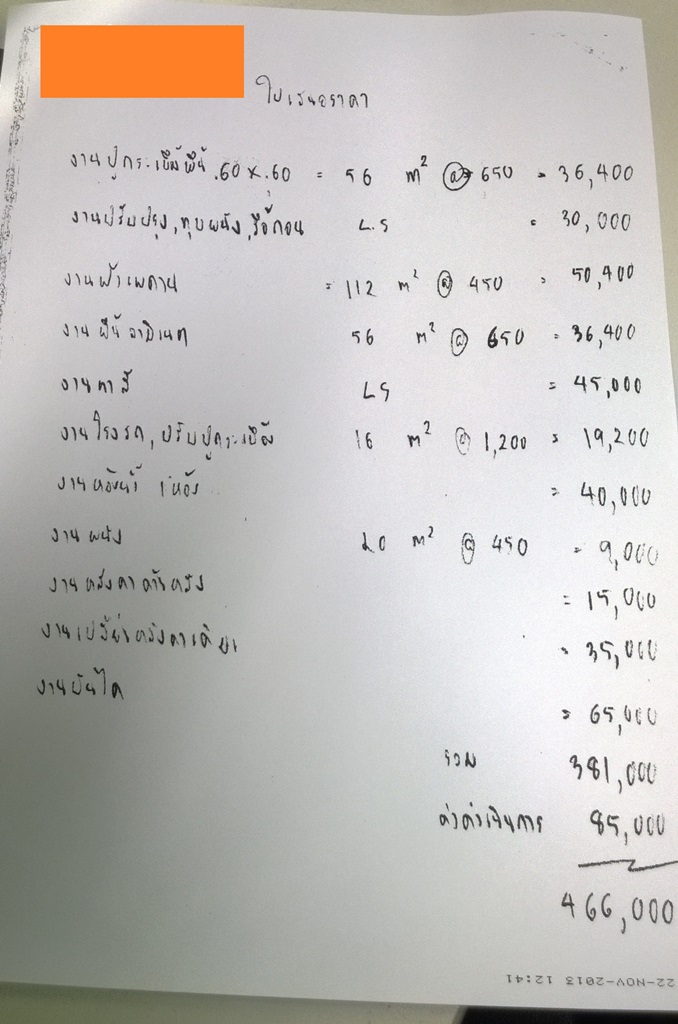 ใบเสนอราคา
งานปูกระเบื้องพื้น .60 x .60 = 56 m² @ 650 = 36,400
งานปรับปรุง, ทุบผนัง, รื้อถอน L.S = 30,000
งานฝ้าเพดาน = 112 m² @ 450 = 50,400
งานพื้นลามิเนต 56 m² @ 650 = 36,400
งานทาสี LS = 45,000
งานโรงรถ, ปรับปูกระเบื้อง 16 m² @ 1,200 = 19,200
งานห้องน้ำ 1 ห้อง = 40,000
งานผนัง 20 m² @ 450 = 9,000
งานหลังคาด้านหลัง = 15,000
งานเปลี่ยนหลังคา = 35,000
งานบันได = 65,000
รวม 381,000
ค่าดำเนินการ 85,000
466,000
22-NOV-2013 12:41